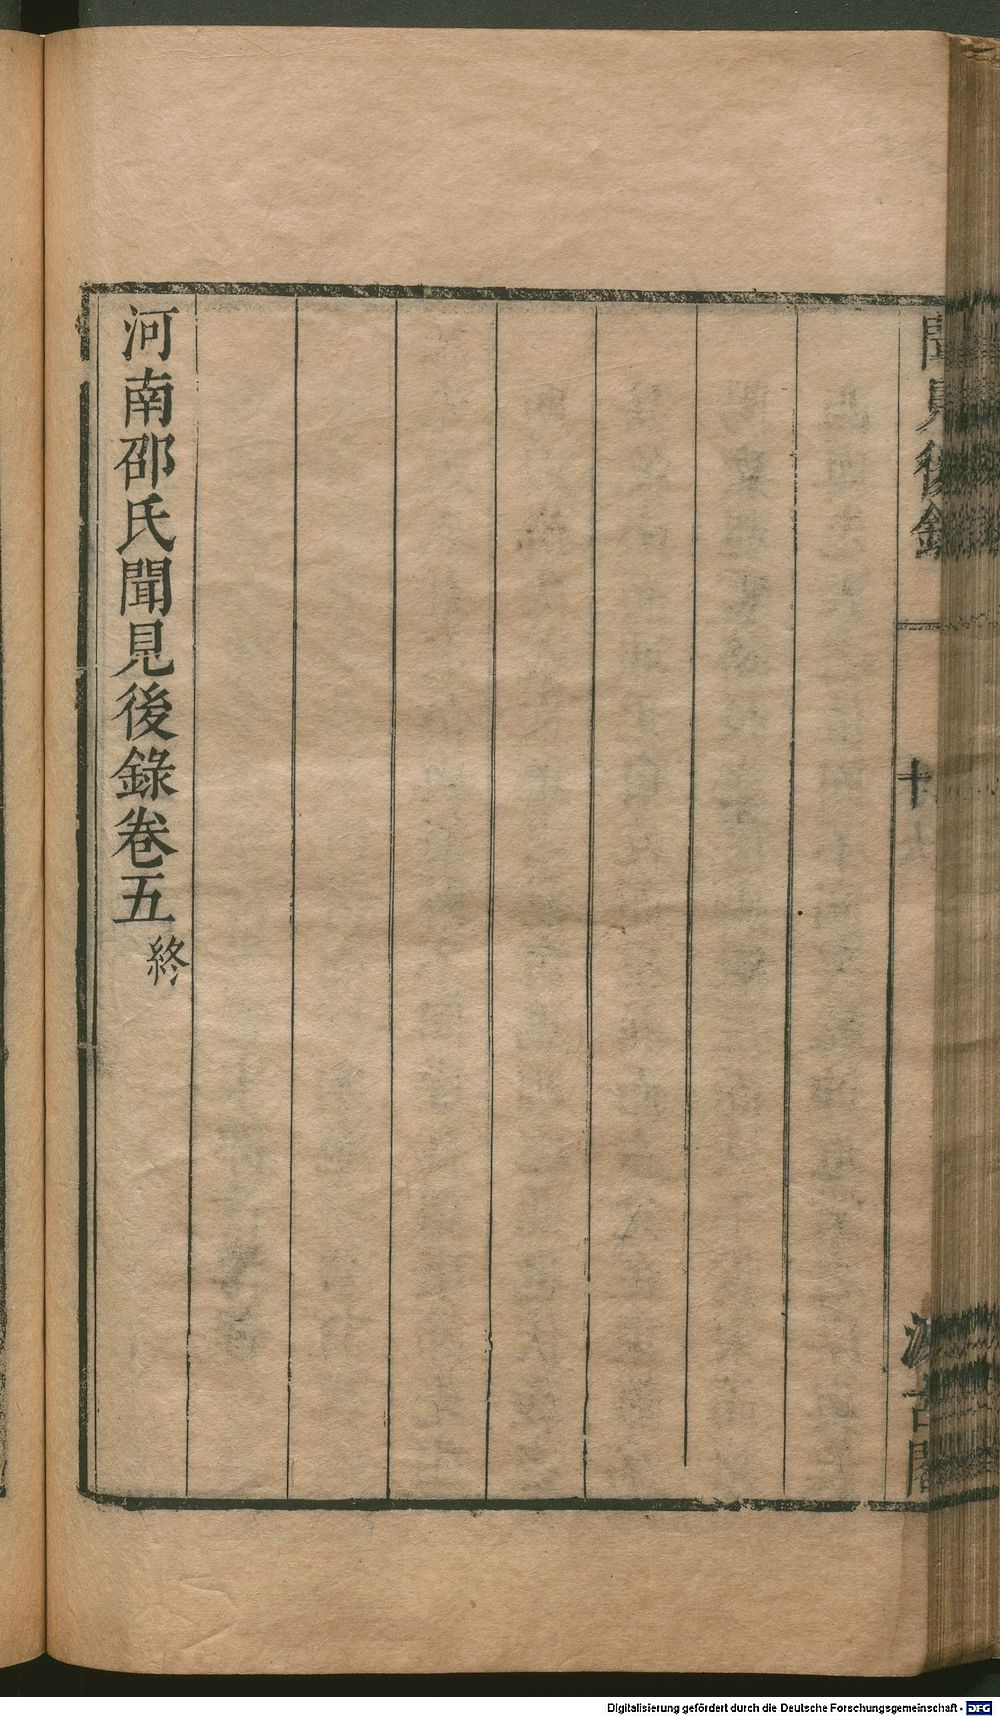 聞見後錄
十九
汲古閣
河南邵氏聞見後錄卷五終
Digitalisierung gefördert durch die Deutsche Forschungsgemeinschaft - DFG